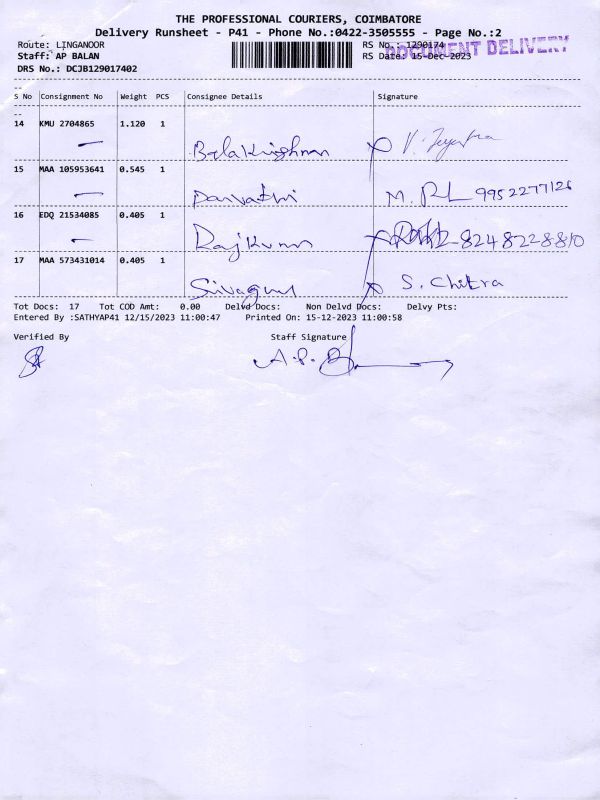 THE PROFESSIONAL COURIERS, COIMBATORE
Delivery Runsheet - P41 - Phone No.:0422-3505555 - Page No.:2
Route: LINGANOOR RS No.: 1290174
DOCUMENT DELIVERY
Staff: AP BALAN RS Date: 15-Dec-2023
DRS No.: DCJB129017402
S No Consignment No Weight PCS Consignee Details Signature
14 KMU 2704865 1.120 1
Balakrishnan
15 MAA 105953641 0.545 1
Parvathi M. 9952277126
16 EDQ 21534085 0.405 1
Rajkumar 8248228810
17 MAA 573431014 0.405 1
S. Chitra
Tot Docs: 17 Tot COD Amt: 0.00 Delvd Docs: Non Delvd Docs: Delvy Pts:
Entered By :SATHYAP41 12/15/2023 11:00:47 Printed On: 15-12-2023 11:00:58
Verified By Staff Signature